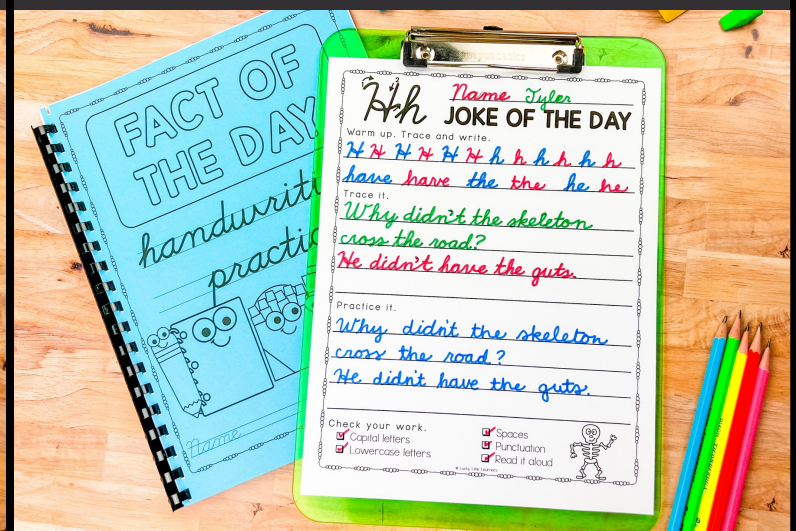 FACT OF
THE DAY
handwriti
practic
Name
Hh
Name Tyler
JOKE OF THE DAY
Warm up. Trace and write.
H H H H H H h h h h h h
have have the the he he
Trace it.
Why didn't the skeleton
cross the road?
He didn't have the guts.
Practice it.
Why didn't the skeleton
cross the road?
He didn't have the guts.
Check your work.
Capital letters
Lowercase letters
Spaces
Punctuation
Read it aloud
© Lucky Little Learners